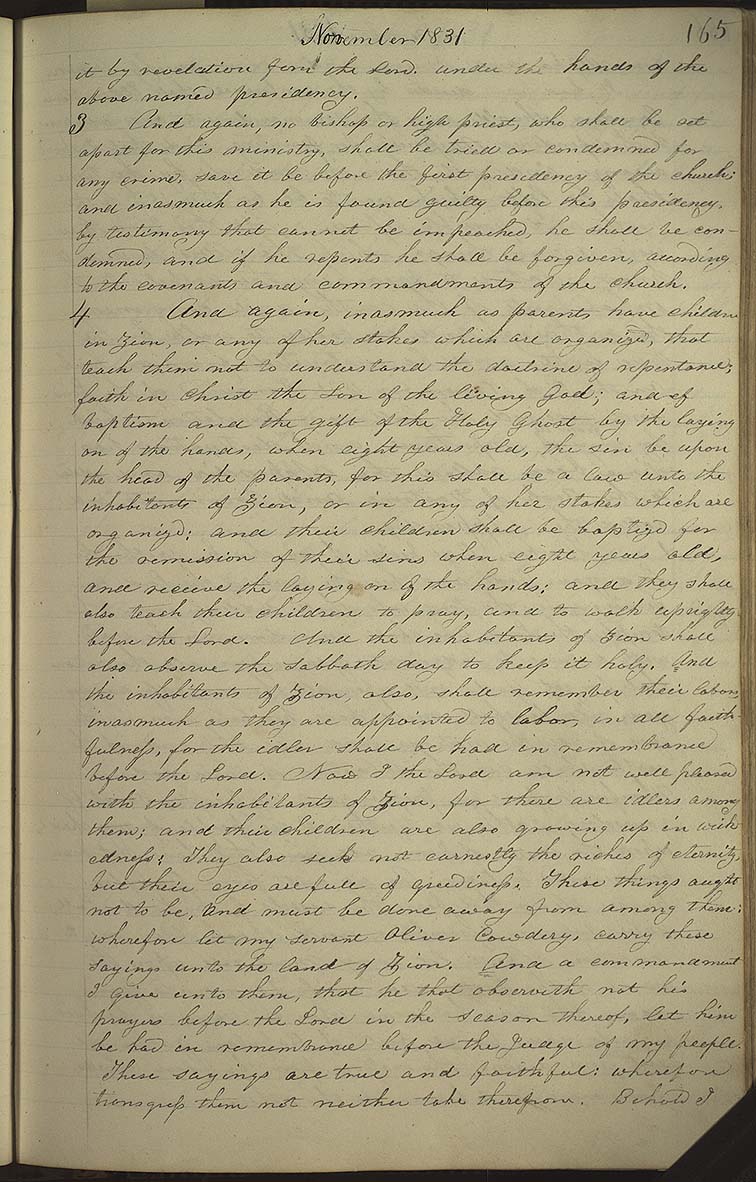 November 1831
165
it by revelation from the Lord. under the hands of the
above named presidency.
3 And again, no bishop or high priest, who shall be set
apart for this ministry, shall be tried or condemned for
any crime, save it be before the first presidency of the church;
and inasmuch as he is found guilty before this presidency,
by testimony that cannot be impeached, he shall be con-
demned, and if he repents he shall be forgiven, according
to the covenants and commandments of the church.
4 And again, inasmuch as parents have children
in Zion, or any of her stakes which are organized, that
teach them not to understand the doctrine of repentance;
faith in Christ the Son of the living God; and of
baptism and the gift of the Holy Ghost by the laying
on of the hands, when eight years old, the sin be upon
the head of the parents, for this shall be a law unto the
inhabitants of Zion, or in any of her stakes which are
organized; and their children shall be baptized for
the remission of their sins when eight years old,
and receive the laying on of the hands: and they shall
also teach their children to pray, and to walk uprightly
before the Lord. And the inhabitants of Zion shall
also observe the Sabbath day to keep it holy. And
the inhabitants of Zion, also, shall remember their labors,
inasmuch as they are appointed to labor, in all faith-
fulness, for the idler shall be had in remembrance
before the Lord. Now I the Lord am not well pleased
with the inhabitants of Zion, for there are idlers among
them; and their children are also growing up in wick
edness: They also seek not earnestly the riches of eternity,
but their eyes are full of greediness. These things aught
not to be, and must be done away from among them:
wherefore let my servant Oliver Cowdery, carry these
sayings unto the land of Zion. And a commandment
I give unto them, that he that observeth not his
prayers before the Lord in the season thereof, let him
be had in remembrance before the Judge of my people.
These sayings are true and faithful: wherefore
transgress them not neither take therefrom. Behold I